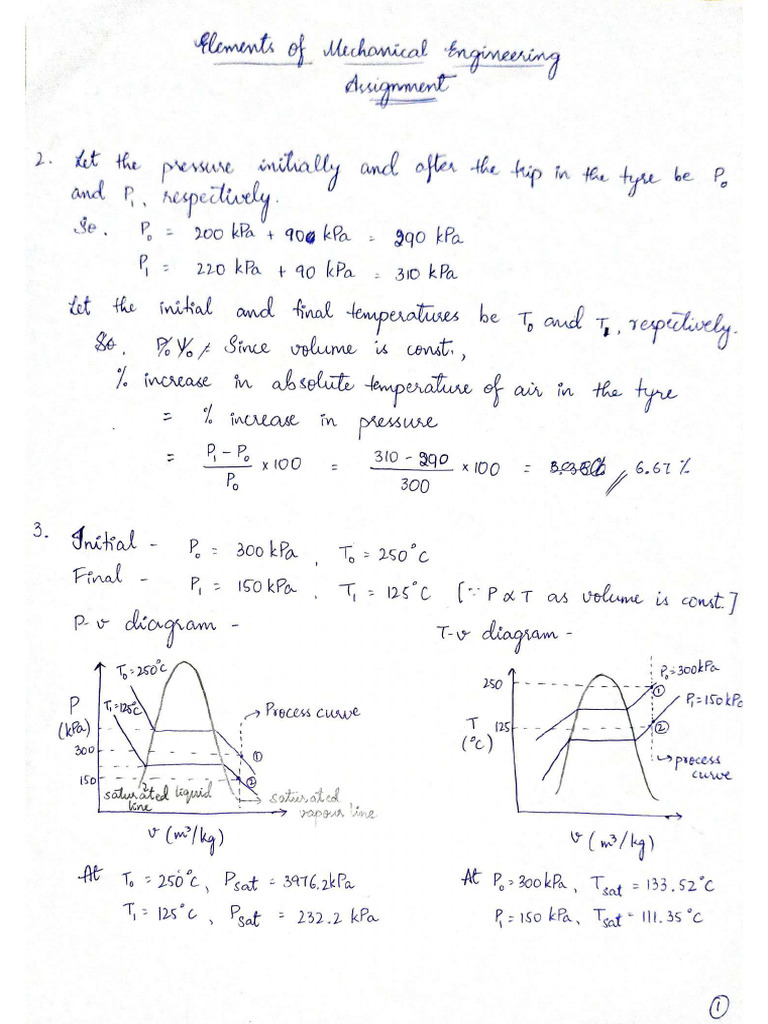 Elements of Mechanical Engineering
Assignment
2. Let the pressure initially and after the trip in the tyre be P₀
and P₁, respectively.
So, P₀ = 200 kPa + 90 kPa = 290 kPa
P₁ = 220 kPa + 90 kPa = 310 kPa
Let the initial and final temperatures be T₀ and T₁, respectively.
So, P₀V₀ / Since volume is const.,
% increase in absolute temperature of air in the tyre
= % increase in pressure
= (P₁ - P₀)/P₀ × 100 = (310 - 290)/300 × 100 = 6.67 %
3. Initial - P₀ = 300 kPa, T₀ = 250°C
Final - P₁ = 150 kPa, T₁ = 125°C [∵ P ∝ T as volume is const.]
P-v diagram -
T-v diagram -
T₀ = 250°C
T₁ = 125°C
P
(kPa)
300
150
Process curve
①
②
saturated liquid
line
saturated
vapour line
v (m³/kg)
P₀ = 300 kPa
P₁ = 150 kPa
250
T
(°C)
125
①
②
process
curve
v (m³/kg)
At T₀ = 250°C, Psat = 3976.2 kPa
T₁ = 125°C, Psat = 232.2 kPa
At P₀ = 300 kPa, Tsat = 133.52°C
P₁ = 150 kPa, Tsat = 111.35°C
①